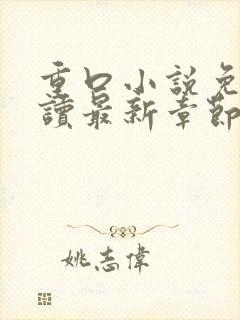 重口小説免
讀最新章節
姚志偉